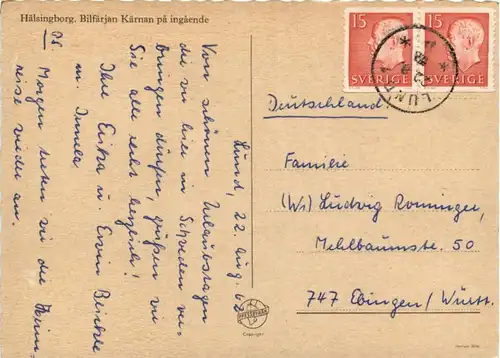 Hälsingborg. Bilfärjan Kärnan på ingående
Lund, 22. Aug. 62
Von schönen Urlaubstagen
die wir hier in Schweden ver-
bringen dürfen, grüßen wir
Sie alle recht herzlich!
Ihre Erika u. Erwin
m.
PS
Morgen treten wir die Heim-
reise wieder an.
15
SVERIGE
15
SVERIGE
LUND
Deutschland
Familie
(Ws) Ludwig Rominger,
Mehlbaumstr. 50
747 Ebingen/Württ.
Copyright